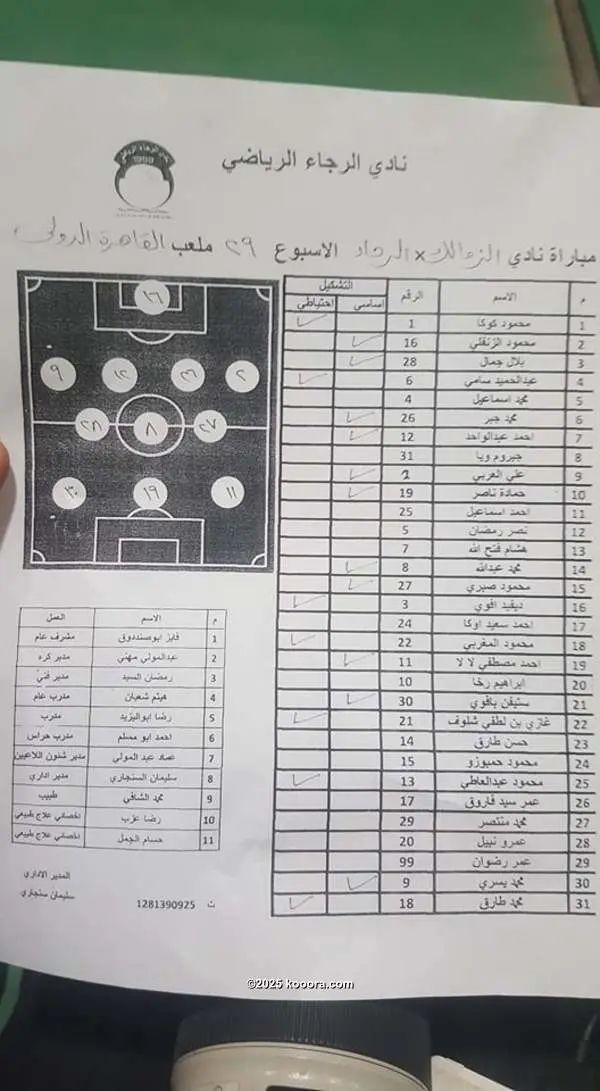 نادي الرجاء الرياضي
1989
مباراة نادي الزمالك × الرجاء الاسبوع ٢٩ ملعب القاهرة الدولي
م الاسم الرقم التشكيل
اساسي احتياطي
1 محمود كوكا 1 ✓
2 محمود الزنفلي 16 ✓
3 بلال جمال 28 ✓
4 عبدالحميد سامي 6 ✓
5 محمد اسماعيل 4
6 محمد جبر 26 ✓
7 احمد عبدالواحد 12 ✓
8 جيروم ويا 31
9 علي العربي 2 ✓
10 حمادة ناصر 19 ✓
11 احمد اسماعيل 25
12 نصر رمضان 5
13 هشام فتح الله 7
14 محمد عبدالله 8 ✓
15 محمود صبري 27 ✓
16 ديفيد افوي 3 ✓
17 احمد سعيد اوكا 24
18 محمود المغربي 22 ✓
19 احمد مصطفي لا لا 11 ✓
20 ابراهيم رخا 10
21 ستيفن يافوي 30 ✓
22 غازي بن لطفي شلوف 21 ✓
23 حسن طارق 14
24 محمود حمبوزو 15
25 محمود عبدالعاطي 13 ✓
26 عمر سيد فاروق 17
27 محمد منتصر 29
28 عمرو نبيل 20
29 عمر رضوان 99
30 محمد يسري 9 ✓
31 محمد طارق 18 ✓
١٦
٩ ١٢ ٢٦ ٢
٢٨ ٨ ٢٧
٣٠ ١٩ ١١
م الاسم العمل
1 فايز ابوصندوق مشرف عام
2 عبدالمولي مهني مدير كره
3 رمضان السيد مدير فني
4 هيثم شعبان مدرب عام
5 رضا ابواليزيد مدرب
6 احمد ابو مسلم مدرب حراس
7 عماد عبد المولي مدير شئون اللاعبين
8 سليمان السنجاري مدير اداري
9 محمد الشافي طبيب
10 رضا عزب اخصائي علاج طبيعي
11 حسام الجمل اخصائي علاج طبيعي
المدير الاداري
سليمان سنجاري
ت 1281390925
©2025 kooora.com